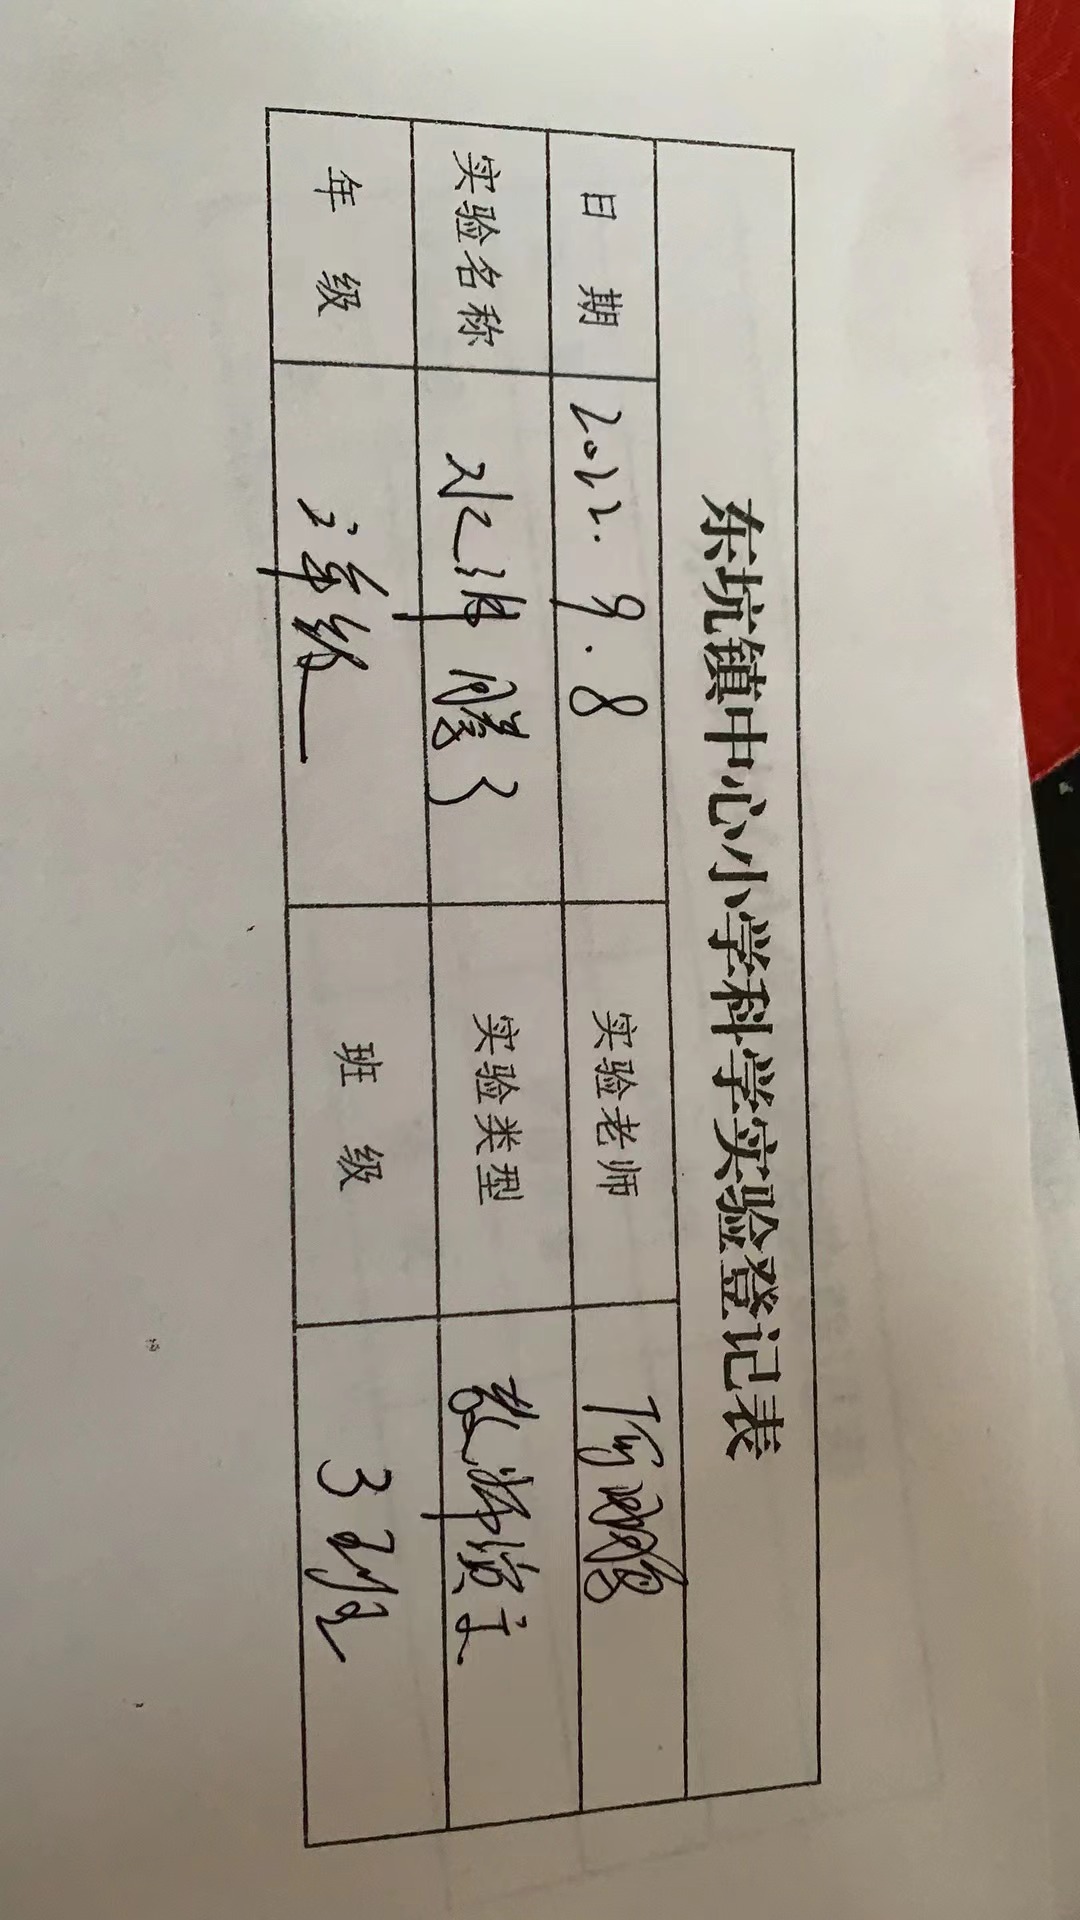 东坑镇中心小学科学实验登记表
日 期 2022.9.8 实验老师
实验名称 水沸腾了 实验类型 教师演示
年 级 三年级 班 级 3班